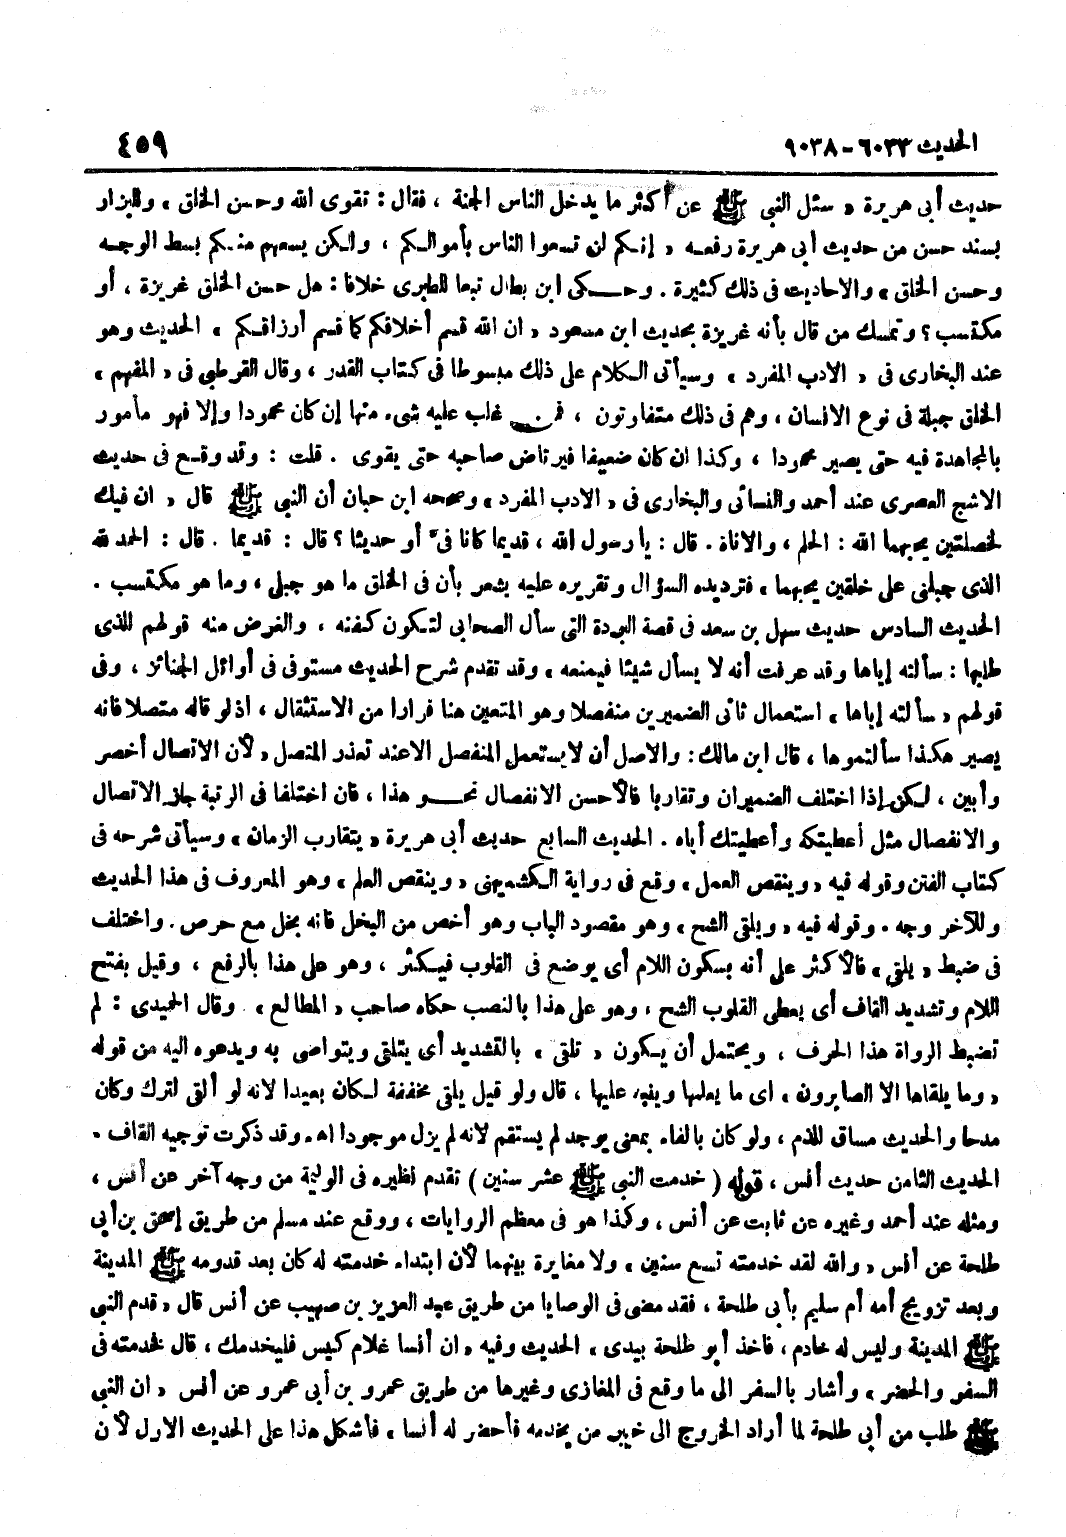 الحديث ٦٠٣٣ - ٩٠٣٨ ٤٥٩
حديث أبى هريرة « سئل النبي ﷺ عن أكثر ما يدخل الناس الجنة ، فقال : تقوى الله وحسن الخلق » وللبزار
بسند حسن من حديث أبى هريرة رفعه « إنكم لن تسعوا الناس بأموالكم ، ولكن يسعهم منكم بسط الوجه
وحسن الخلق » والاحاديث فى ذلك كثيرة . وحكى ابن بطال تبعا للطبرى خلافا : هل حسن الخلق غريزة ، أو
مكتسب ؟ وتمسك من قال بأنه غريزة بحديث ابن مسعود « ان الله قسم أخلاقكم كما قسم أرزاقكم » الحديث وهو
عند البخارى فى « الادب المفرد » وسيأتى الكلام على ذلك مبسوطا فى كتاب القدر ، وقال القرطبى فى « المفهم »
الخلق جبلة فى نوع الانسان ، وهم فى ذلك متفاوتون ، فمن غلب عليه شىء منها إن كان محمودا وإلا فهو مأمور
بالمجاهدة فيه حتى يصير محمودا ، وكذا ان كان ضعيفا فيرتاض صاحبه حتى يقوى . قلت : وقد وقع فى حديث
الاشج العصرى عند أحمد والنسائى والبخارى فى « الادب المفرد » وصححه ابن حبان أن النبى ﷺ قال « ان فيك
لخصلتين يحبهما الله : الحلم ، والاناة . قال : يا رسول الله ، قديما كانا فىّ أو حديثا ؟ قال : قديما . قال : الحمد لله
الذى جبلنى على خلقين يحبهما » فترديده السؤال وتقريره عليه يشعر بأن فى الخلق ما هو جبلى ، وما هو مكتسب .
الحديث السادس حديث سهل بن سعد فى قصة البردة التى سأل الصحابى لتكون كفنه ، والغرض منه قولهم للذى
طلبها : سألته إياها وقد عرفت أنه لا يسأل شيئا فيمنعه » وقد تقدم شرح الحديث مستوفى فى أوائل الجنائز ، وفى
قولهم « سألته إياها » استعمال ثانى الضميرين منفصلا وهو المتعين هنا فرارا من الاستثقال ، اذ لو قاله متصلا فانه
يصير هكذا سألتموها ، قال ابن مالك : والاصل أن لا يستعمل المنفصل الا عند تعذر المتصل « لأن الاتصال أخصر
وأبين ، لكن إذا اختلف الضميران وتقاربا فالأحسن الانفصال نحو هذا ، فان اختلفا فى الرتبة جاز الاتصال
والانفصال مثل أعطيتكه وأعطيتك أياه . الحديث السابع حديث أبى هريرة « يتقارب الزمان » وسيأتى شرحه فى
كتاب الفتن وقوله فيه « وينقص العمل » وقع فى رواية الكشميهنى « وينقص العلم » وهو المعروف فى هذا الحديث
وللآخر وجه . وقوله فيه « ويلقى الشح » وهو مقصود الباب وهو أخص من البخل فانه بخل مع حرص . واختلف
فى ضبط « يلقى » فالأكثر على أنه بسكون اللام أى يوضع فى القلوب فيكثر ، وهو على هذا بالرفع ، وقيل بفتح
اللام وتشديد القاف أى يعطى القلوب الشح ، وهو على هذا بالنصب حكاه صاحب « المطالع » . وقال الحميدى : لم
تضبط الرواة هذا الحرف ، ويحتمل أن يكون « تلقى » بالتشديد أى يتلقى ويتواصى به ويدعوه اليه من قوله
« وما يلقاها الا الصابرون » اى ما يعلمها وينبه عليها ، قال ولو قيل يلقى مخففة لكان بعيدا لانه لو ألقى لترك وكان
مدحا والحديث مساق للذم ، ولو كان بالفاء بمعنى يوجد لم يستقم لانه لم يزل موجودا اه . وقد ذكرت توجيه القاف .
الحديث الثامن حديث أنس ، قوله ( خدمت النبى ﷺ عشر سنين ) تقدم نظيره فى الوليمة من وجه آخر عن أنس ،
ومثله عند أحمد وغيره عن ثابت عن أنس ، وكذا هو فى معظم الروايات ، ووقع عند مسلم من طريق إسحق بن أبى
طلحة عن أنس « والله لقد خدمته تسع سنين » ولا مغايرة بينهما لأن ابتداء خدمته له كان بعد قدومه ﷺ المدينة
وبعد تزويج أمه أم سليم بأبى طلحة ، فقد مضى فى الوصايا من طريق عبد العزيز بن صهيب عن أنس قال « قدم النبى
ﷺ المدينة وليس له خادم ، فاخذ أبو طلحة بيدى » الحديث وفيه « ان أنسا غلام كيس فليخدمك ، قال فخدمته فى
السفر والحضر » وأشار بالسفر الى ما وقع فى المغازى وغيرها من طريق عمرو بن أبى عمرو عن أنس « ان النبى
ﷺ طلب من أبى طلحة لما أراد الخروج الى خيبر من يخدمه فأحضر له أنسا » فأشكل هذا على الحديث الاول لأن